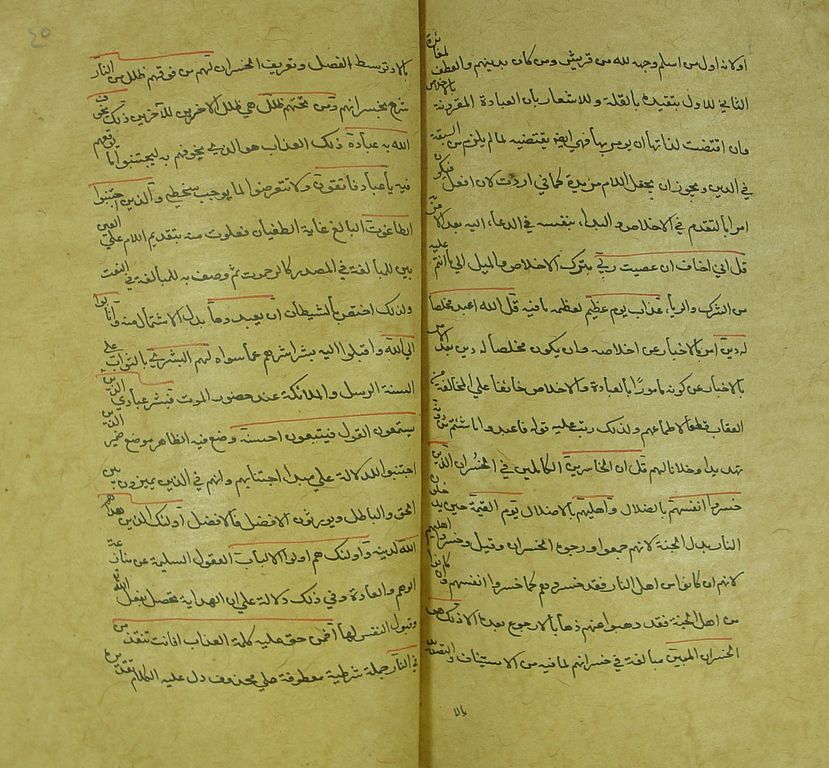 او لانه اول من اسلم وجهه لله من قريش ومن كان بدينهم والعطف لمغايرة
الثاني للاول بتقييده بالعلة وللاشعار بان العبادة المقرونة بالاخلاص
وان اقتضت لذاتها ان يومر بها فهي ايضا يقتضيه لما يلزم من السبقة
في الدين ويجوز ان يجعل اللام مزيدة كما في اردت لان افعل فيكون
امرا بالتقدم في الاخلاص والبداء بنفسه في الدعاء اليه بعد الامر
قل اني اخاف ان عصيت ربي بترك الاخلاص والميل الي ما انتم عليه
من الشرك والرياء عذاب يوم عظيم لعظمة ما فيه قل الله اعبد مخلصا
له ديني امر بالاخبار عن اخلاصه وان يكون مخلصا له دينه بعد الامر
بالاخبار عن كونه مامورا بالعبادة والاخلاص خائفا علي المخالفة من
العقاب قطعا لاطماعهم ولذلك رتب عليه قوله فاعبدوا ما شئتم من دونه
تهديدا وخذلانا لهم قل ان الخاسرين الكاملين في الخسران الذين
خسروا انفسهم بالضلال واهليهم بالاضلال يوم القيمة حين يدخلون
النار بدل الجنة لانهم جمعوا وجوه الخسران وقيل وخسروا اهليهم
لانهم ان كانوا من اهل النار فقد خسروهم كما خسروا انفسهم وان كانوا
من اهل الجنة فقد ذهبوا عنهم ذهابا لا رجوع بعده الا ذلك هو
الخسران المبين مبالغة في خسرانهم لما فيه من الاستيناف والتصدير
بالا
٤٥
بالا وتوسط الفصل وتعريف الخسران لهم من فوقهم ظلل من النار
شرح بخسرانهم ومن تحتهم ظلل هي ظلل الاخرين للآخرين ذلك يخوف
الله به عباده ذلك العذاب هو الذي يخوفهم به ليجتنبوا ما يوقعهم
فيه يا عباد فاتقون ولا تتعرضوا لما يوجب سخطي والذين اجتنبوا
الطاغوت البالغ غاية الطغيان فعلوت منه بتقديم اللام علي العين
بني للمبالغة في المصدر كالرحموت ثم وصف به للمبالغة في النعت
ولذلك اختص بالشيطان ان يعبدوها بدل الاشتمال منه وأنابوا
الي الله واقبلوا اليه بشراشرهم عما سواه لهم البشري بالثواب علي
السنة الرسل والملائكة عند حضور الموت فبشر عبادي الذين
يستمعون القول فيتبعون احسنه وضع فيه الظاهر موضع ضمير الذين
اجتنبوا للدلالة علي مبدا اجتنابهم وانهم في الدين يميزون بين
الحق والباطل ويوثرون الافضل فالافضل اولئك الذين هداهم
الله لدينه واولئك هم اولوا الالباب العقول السليمة عن منازعة
الوهم والعادة وفي ذلك دلالة علي ان الهداية تحصل بفعل الله
وقبول النفس لها أفمن حق عليه كلمة العذاب افانت تنقذ من
في النار جملة شرطية معطوفة علي محذوف دل عليه الكلام تقديره